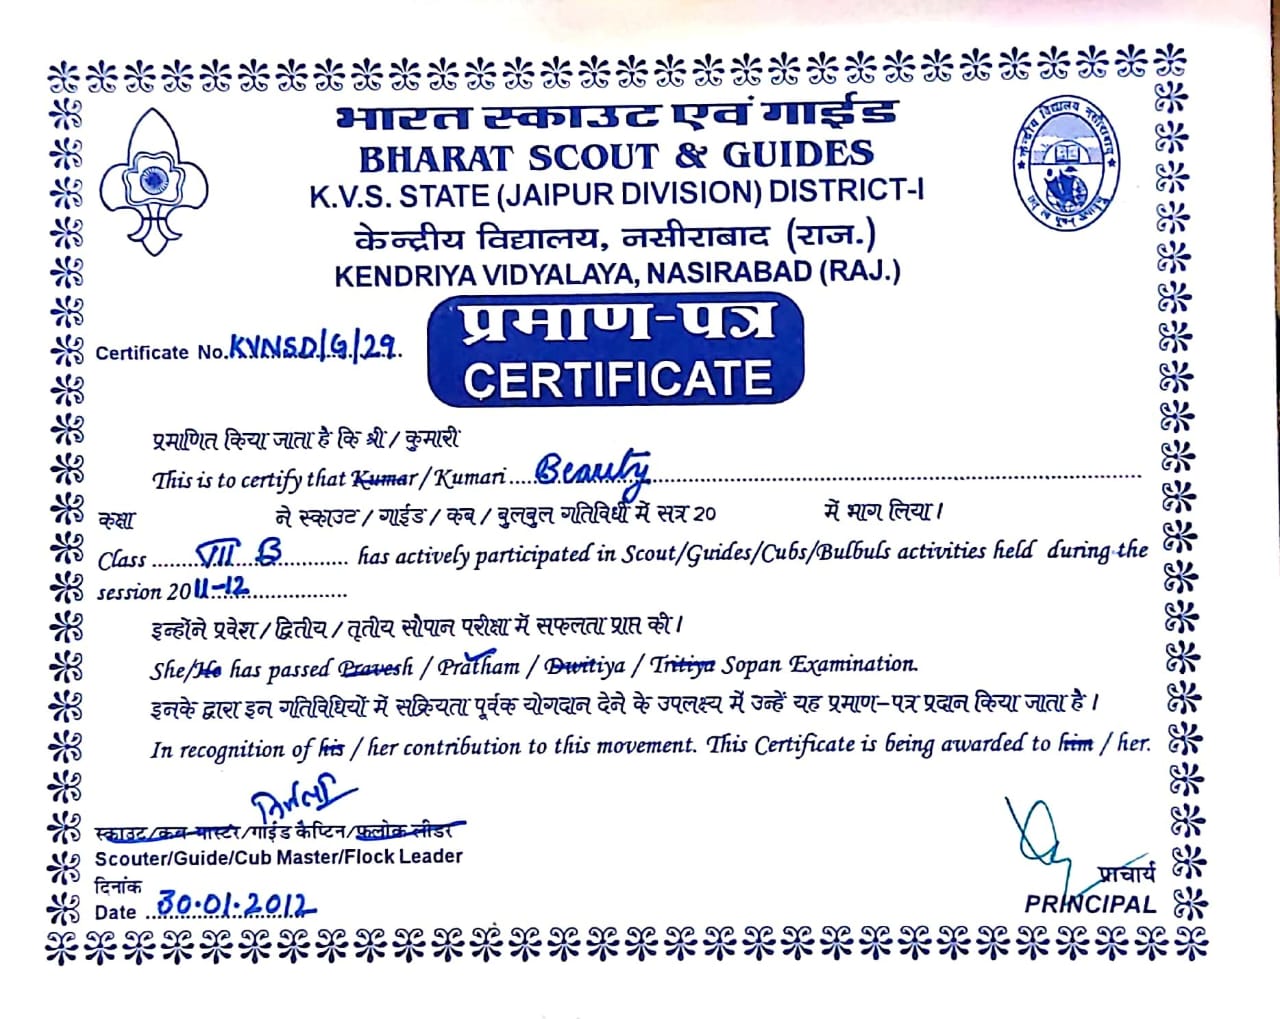 भारत स्काउट एवं गाईड
BHARAT SCOUT & GUIDES
K.V.S. STATE (JAIPUR DIVISION) DISTRICT-I
केन्द्रीय विद्यालय, नसीराबाद (राज.)
KENDRIYA VIDYALAYA, NASIRABAD (RAJ.)
केन्द्रीय विद्यालय नसीराबाद
प्रमाण-पत्र
Certificate No. KVNSD/G/29.
CERTIFICATE
प्रमाणित किया जाता है कि श्री / कुमारी
This is to certify that Kumar / Kumari .... Beauty
कक्षा ने स्काउट / गाईड / कब / बुलबुल गतिविधी में सत्र 20 में भाग लिया।
Class ........ VII B ............ has actively participated in Scout/Guides/Cubs/Bulbuls activities held during the
session 2011-12
इन्होंने प्रवेश / द्वितीय / तृतीय सोपान परीक्षा में सफलता प्राप्त की।
She/He has passed Pravesh / Pratham / Dwitiya / Tritiya Sopan Examination.
इनके द्वारा इन गतिविधियों में सक्रियता पूर्वक योगदान देने के उपलक्ष्य में उन्हें यह प्रमाण-पत्र प्रदान किया जाता है।
In recognition of his / her contribution to this movement. This Certificate is being awarded to him / her.
निर्मला
स्काउट/कब मास्टर/गाइड कैप्टिन/फ़्लोक लीडर
Scouter/Guide/Cub Master/Flock Leader
दिनांक
Date 30.01.2012
प्राचार्य
PRINCIPAL